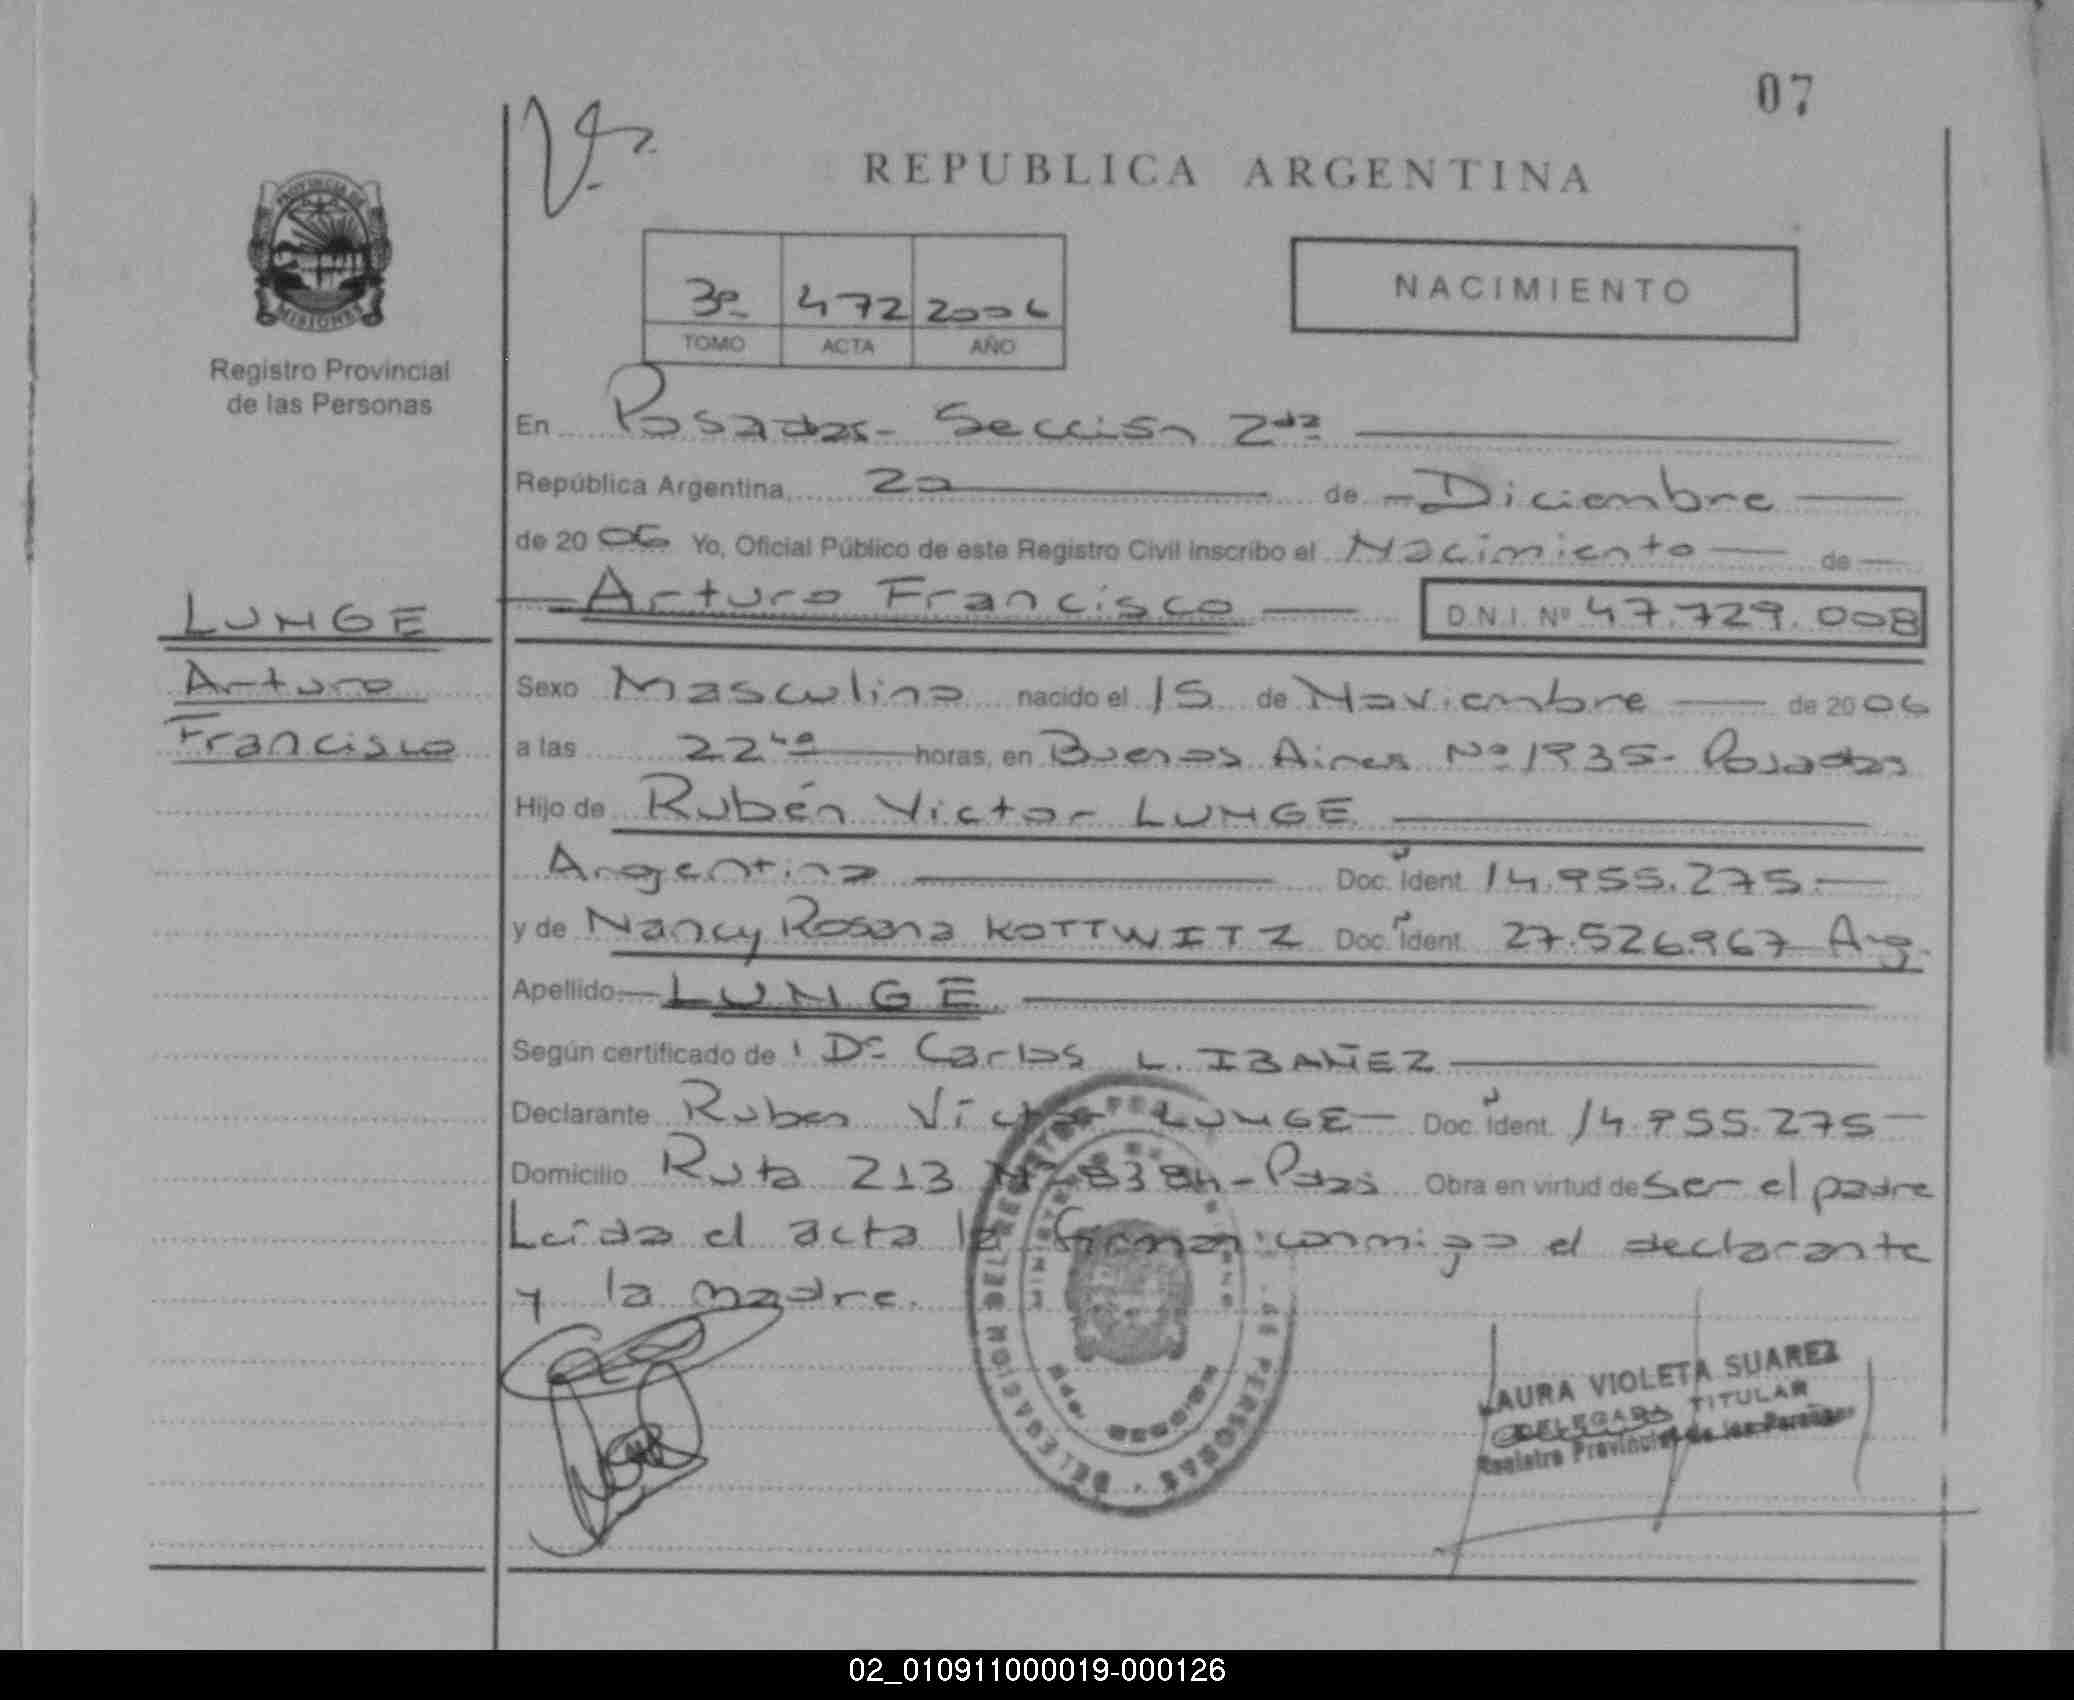 07
REPUBLICA ARGENTINA
PROVINCIA DE
MISIONES
Registro Provincial
de las Personas
3º 472 2006
TOMO ACTA AÑO
NACIMIENTO
En Posadas - Sección 2da
República Argentina, 20 de Diciembre
de 20 06 Yo, Oficial Público de este Registro Civil inscribo el Nacimiento de
Arturo Francisco D.N.I. Nº 47.729.008
LUNGE
Arturo
Francisco
Sexo Masculino nacido el 15 de Noviembre de 20 06
a las 22 horas, en Buenos Aires Nº 1935 - Posadas
Hijo de Rubén Victor LUNGE
Argentina Doc. Ident. 14.955.275
y de Nancy Rosana KOTTWITZ Doc. Ident. 27.526.967 Arg.
Apellido LUNGE
Según certificado de Dr Carlos L. IBAÑEZ
Declarante Ruben Victor LUNGE Doc. Ident. 14.955.275
Domicilio Ruta 213 Nº 8384 - Pdas Obra en virtud de ser el padre
Leída el acta la firman conmigo el declarante
y la madre.
LAURA VIOLETA SUAREZ
DELEGADA TITULAR
Registro Provincial de las Personas
02_010911000019-000126